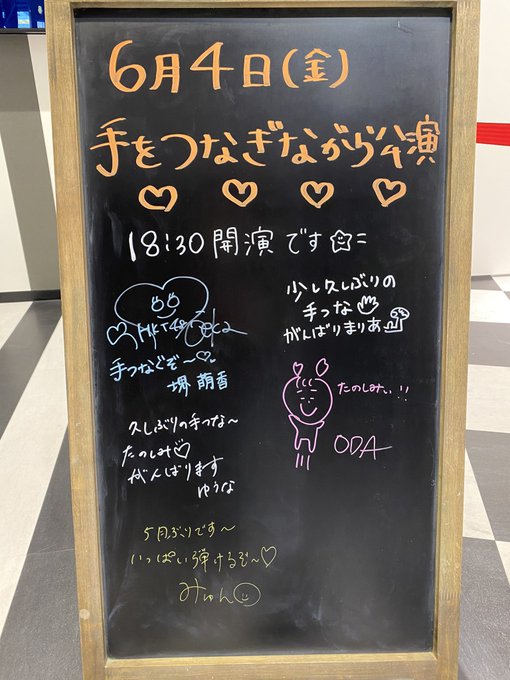 6月4日(金)
手をつなぎながら公演
18:30開演です
HKT48
手つなぐぞ〜
堺 萌香
少し久しぶりの
手つな
がんばりまりあ
たのしみぃ!!
ODA
久しぶりの手つな〜
たのしみ
がんばります
ゆうな
5月ぶりです〜
いっぱい弾けるぞ〜
みゅん